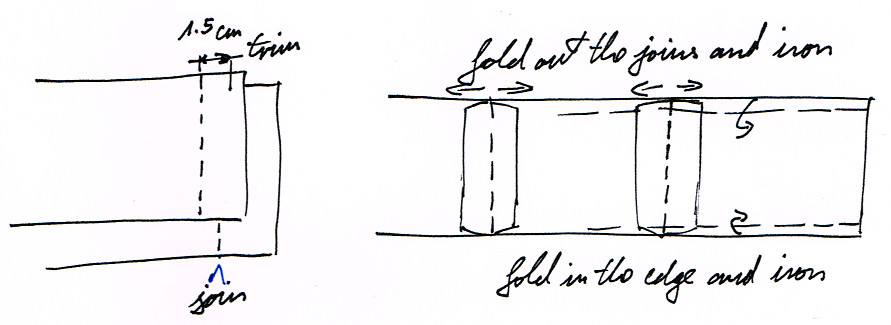 1.5cm
trim
join
fold out the joins and iron
fold in the edge and iron